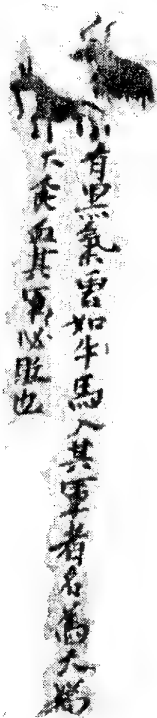 有黑氣雲如牛馬入其軍者名為天狗
下食血其軍必敗也